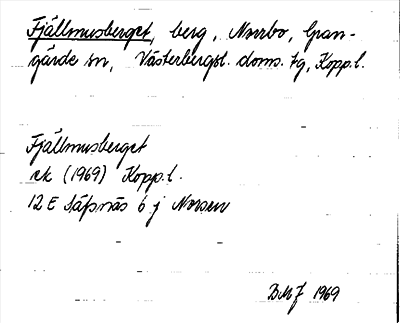 Fjällmusberget, berg, Norrbo, Gran-
gärde sn, Västerbergsl. doms. tg, Kopp.l.
Fjällmusberget
ek (1969) Kopp.l.
12 E Säfsnäs 6 j Norsen
BMJ 1969